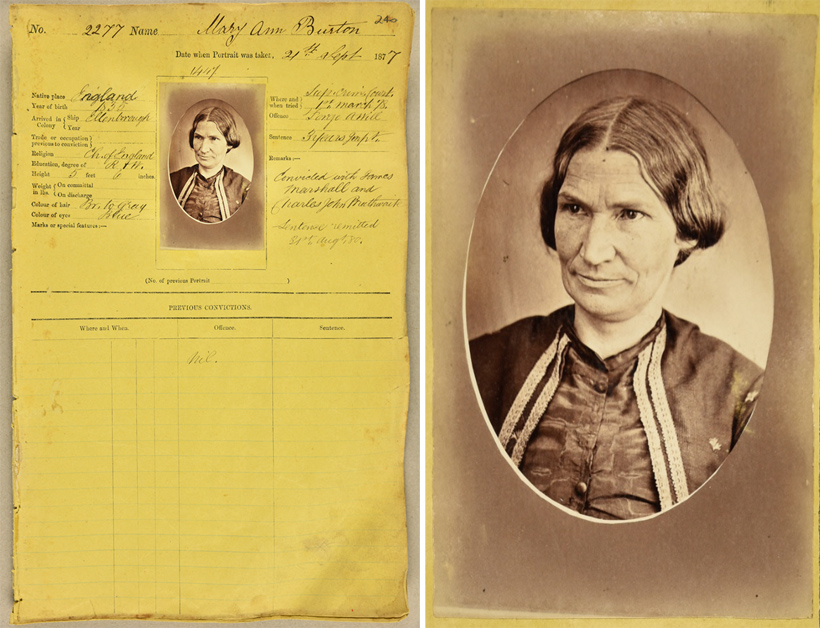 No. 2277 Name Mary Ann Burton
240
Date when Portrait was taken, 21th Sept 1877
Native place England
Year of birth
Arrived in Colony { Ship Ellenborough
Year
Trade or occupation previous to conviction }
Religion Ch. of England
Education, degree of R & W.
Height 5 feet 6 inches
Weight in lbs. { On committal
On discharge
Colour of hair Br. to Gray
Colour of eyes Blue
Marks or special features:—
Where and when tried }
March
Offence
Sentence 3 years
Remarks:—
Convicted with James
Marshall and
Charles John
Sentence remitted
(No. of previous Portrait )
PREVIOUS CONVICTIONS.
Where and When. Offence. Sentence.
Nil.